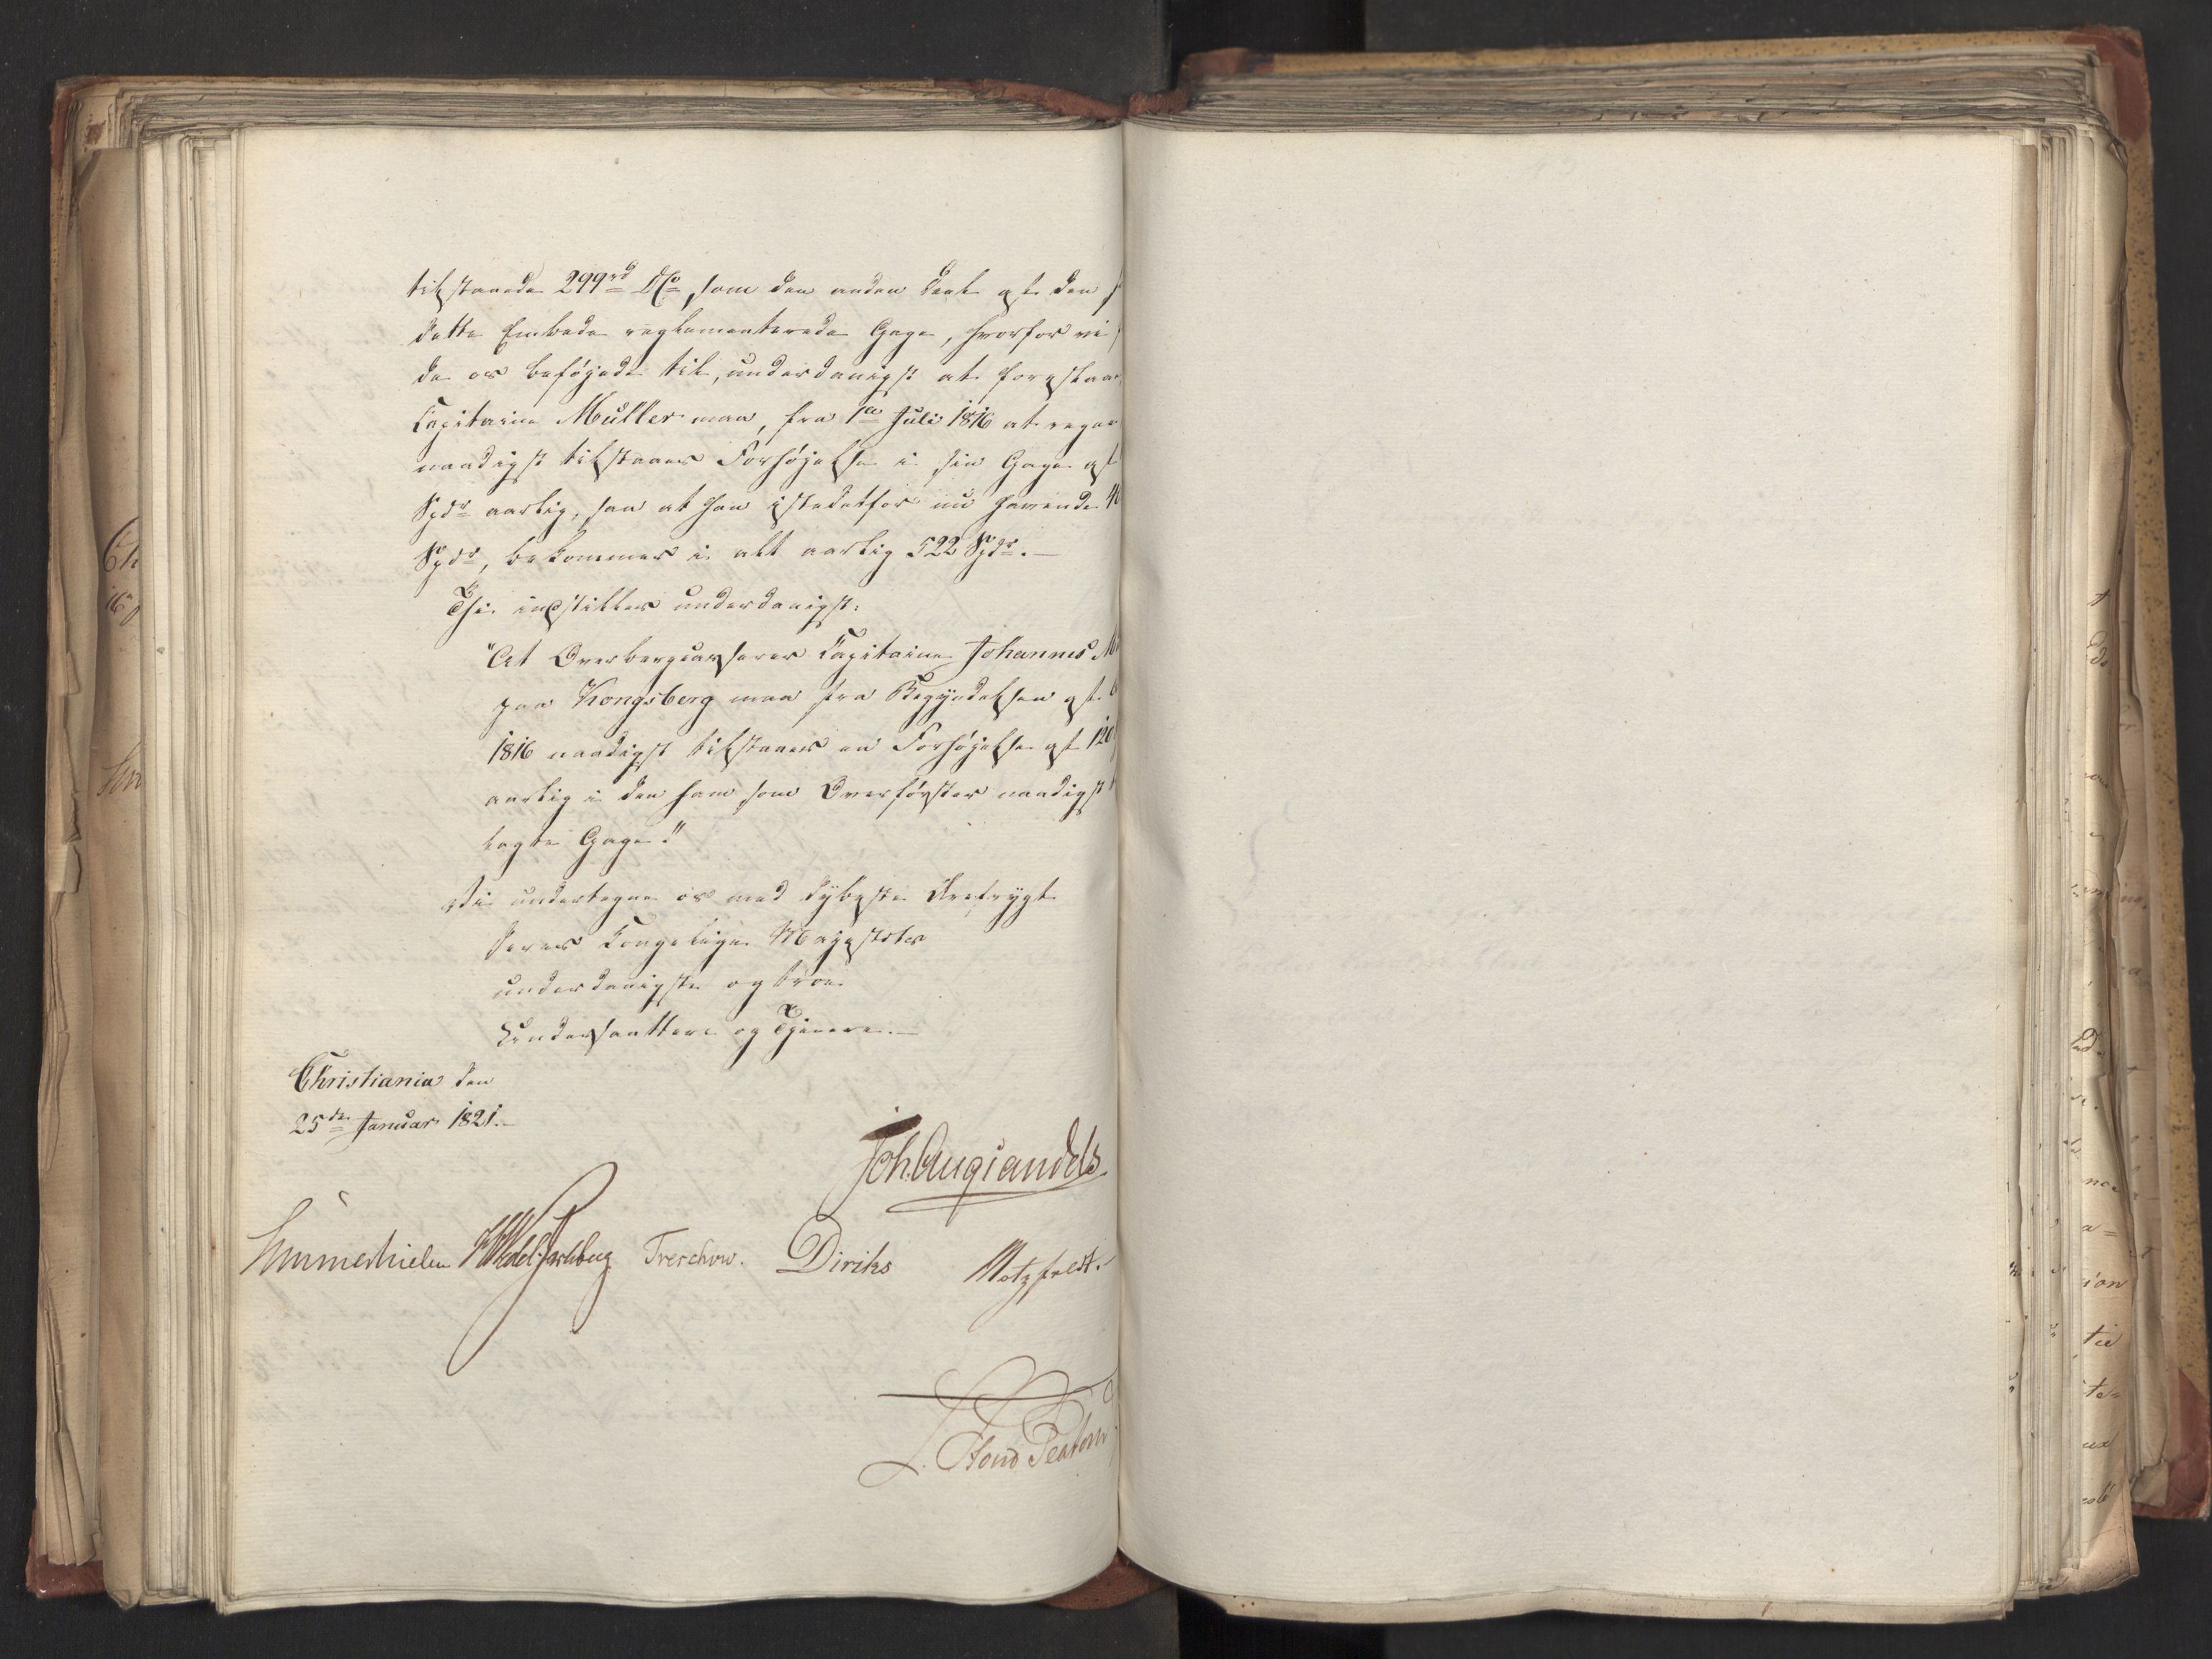 tilstaaede 299 rd DCo, som den anden Deel af den
dette Embede reglementerede Gage, hvorfor vi
de os beføjede til, underdanigst at foreslaae
Capitaine Müller maa, fra 1ste Juli 1816 at regne
naadigst tilstaaes Forhøjelse i sin Gage af
Spdr aarlig, saa at han istedetfor nu havende 40
Spdr, bekommer i alt aarlig 522 Spdr.—
Thi indstilles underdanigst:
"At Overbergcasserer Capitaine Johannes M
paa Kongsberg maa fra Begyndelsen af
1816 naadigst tilstaaes en Forhøjelse af 120
aarlig i den ham som Overførster naadigst
lagte Gage."
Vi undertegne os med dybeste Ærefrygt
Deres Kongelige Majestets
underdanigste og troe
Undersaatter og Tjenere.—
Christiania den
25de Januar 1821.—
Joh. Aug Sandels
Sommerhielm HWedelJarlsberg Treschow. Diriks Motzfeldt.